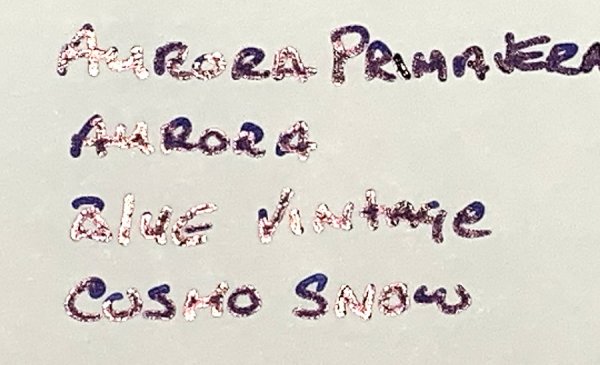 Aurora Primavera
Aurora
Blue Vintage
Cosmo Snow